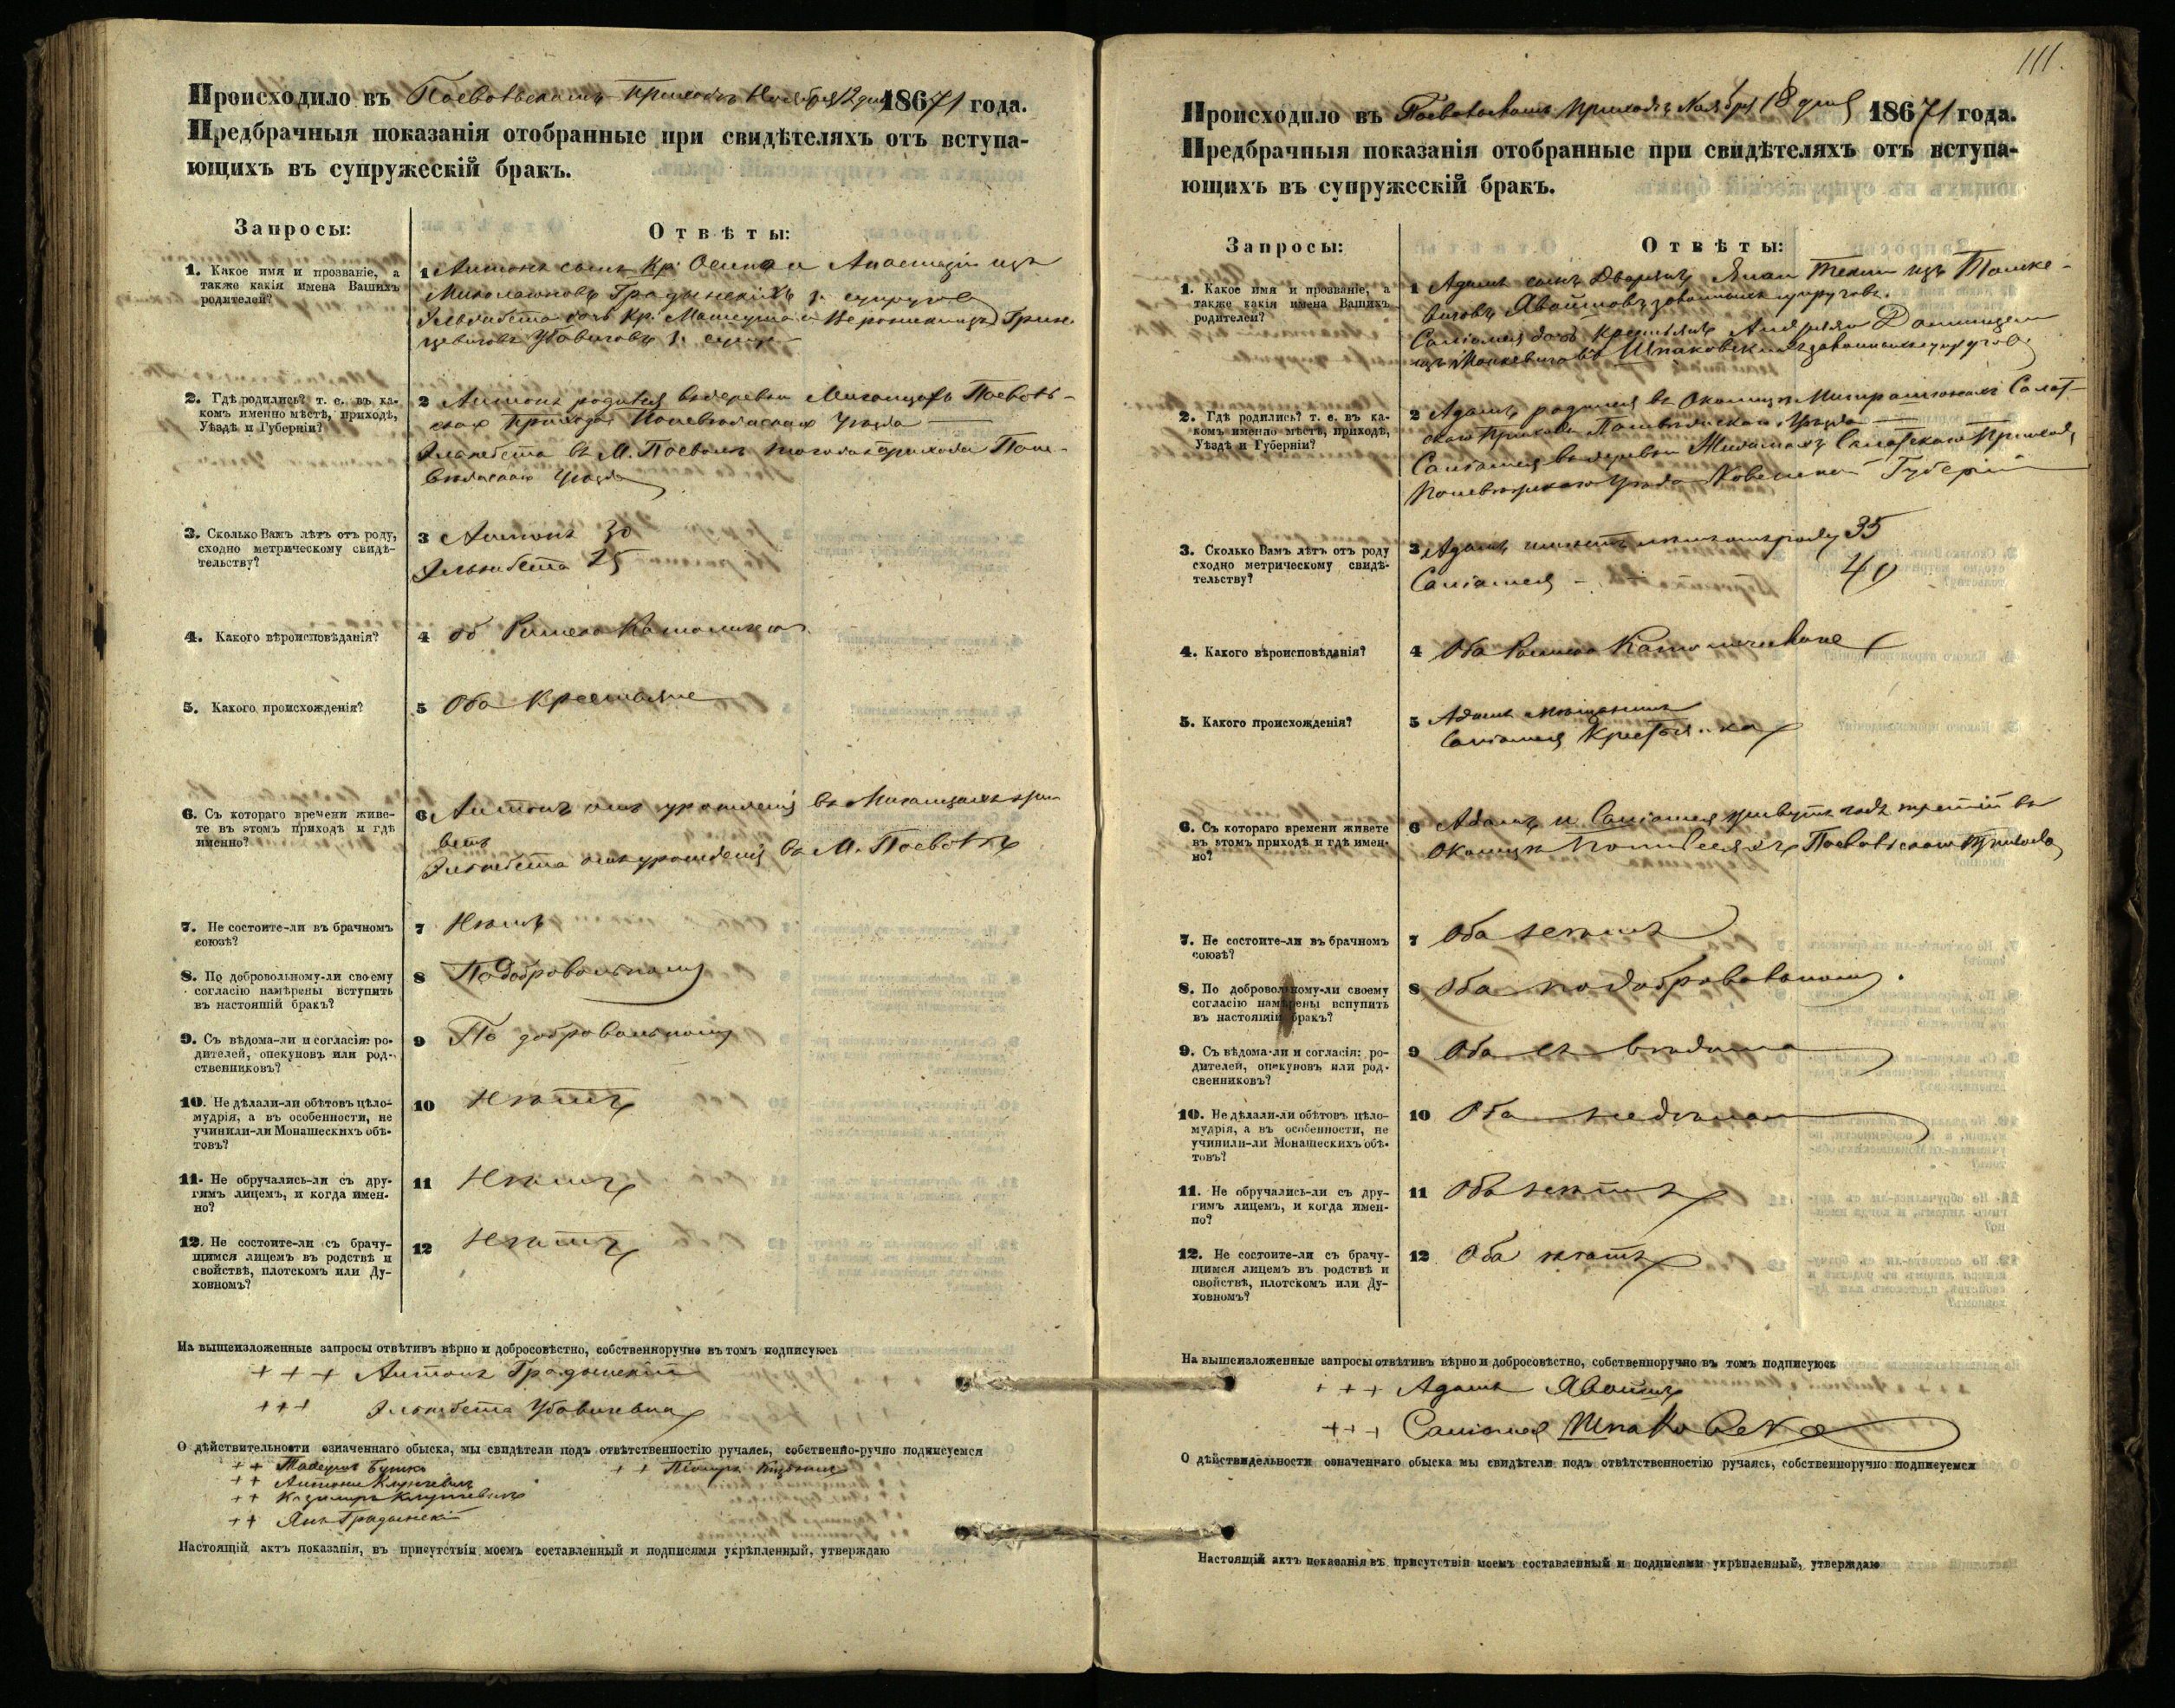 Происходило въ Поевотьскомъ приходѣ Ноября 12 дня 18671 года.
Предбрачныя показанія отобранные при свидѣтеляхъ отъ вступа-
ющихъ въ супружескій бракъ.
Запросы:
Отвѣты:
1. Какое имя и прозваніе, а
также какія имена Вашихъ
родителей?
1 Антонъ сынъ Кр. Осипа и Анастазіи изъ
Градынскихъ з. супруговъ
Эльжбета дочь Кр. Матеуша и Вероники изъ Грин-
цевичовъ Убовичовъ з. супр.
2. Гдѣ родились? т. е. въ ка-
комъ именно мѣстѣ, приходѣ,
Уѣздѣ и Губерніи?
2 Антонъ родился въ деревни Поевоть-
скаго прихода Поневѣжскаго Уѣзда
Эльжбета въ М. Поевотѣ того же прихода Поне-
вѣжскаго Уѣзда
3. Сколько Вамъ лѣтъ отъ роду,
сходно метрическому свидѣ-
тельству?
3 Антонъ 30
Эльжбета 25
4. Какого вѣроисповѣданія?
4 об Римско Католическ.
5. Какого происхожденія?
5 Оба Крестьяне
6. Съ котораго времени живе-
те въ этомъ приходѣ и гдѣ
именно?
6 Антонъ отъ урожденія въ жи-
ветъ
Эльжбета отъ урожденія въ М. Поевотѣ
7. Не состоите-ли въ брачномъ
союзѣ?
7 Нѣтъ
8. По добровольному-ли своему
согласію намѣрены вступить
въ настоящій бракъ?
8 По добровольному
9. Съ вѣдома-ли и согласія: ро-
дителей, опекуновъ или род-
ственниковъ?
9 По добровольному
10. Не дѣлали-ли обѣтовъ цѣло-
мудрія, а въ особенности, не
учинили-ли Монашескихъ обѣ-
товъ?
10 Нѣтъ
11. Не обручались-ли съ дру-
гимъ лицемъ, и когда имен-
но?
11 Нѣтъ
12. Не состоите-ли съ брачу-
щимся лицемъ въ родствѣ и
свойствѣ, плотскомъ или Ду-
ховномъ?
12 Нѣтъ
На вышеизложенные запросы отвѣтивъ вѣрно и добросовѣстно, собственноручно въ томъ подписуюсь
+ + + Антонъ Градынскій
+ + + Эльжбета Убовичевна
О дѣйствительности означеннаго обыска, мы свидѣтели подъ отвѣтственностію ручаясь, собственно-ручно подписуемся
+ + Тадеушъ Бутко
+ + Петръ
+ + Антони
+ + Казимиръ
+ + Янъ Градынскій
Настоящій актъ показанія, въ присутствіи моемъ составленный и подписями укрѣпленный, утверждаю
111.
Происходило въ Поевотьскомъ приходѣ Ноября 18 дня 18671 года.
Предбрачныя показанія отобранные при свидѣтеляхъ отъ вступа-
ющихъ въ супружескій бракъ.
Запросы:
Отвѣты:
1. Какое имя и прозваніе, а
также какія имена Вашихъ
родителей?
1 Адамъ сынъ Дворянъ Яна и Теклии изъ Томке-
вичовъ Явойшовъ законныхъ супруговъ.
Саломея дочь Крестьянъ Андрея и Доминицели
изъ Монкевичовъ Шпаковскихъ законныхъ супруговъ
2. Гдѣ родились? т. е. въ ка-
комъ именно мѣстѣ, приходѣ,
Уѣздѣ и Губерніи?
2 Адамъ родился въ Околицѣ Салат-
скаго прихода Поневѣжскаго Уѣзда
Саломея въ деревни Салатскаго прихода
Поневѣжскаго Уѣзда Ковенской Губерніи
3. Сколько Вамъ лѣтъ отъ роду
сходно метрическому свидѣ-
тельству?
3 Адамъ имѣетъ лѣтъ отъ роду 35
Саломея - - 40
4. Какого вѣроисповѣданія?
4 Оба Римско Католическаге
5. Какого происхожденія?
5 Адамъ мѣщанинъ
Саломея Крестьянка
6. Съ котораго времени живете
въ этомъ приходѣ и гдѣ имен-
но?
6 Адамъ и Саломея живутъ годъ третій въ
Околицѣ Поевотьскаго прихода
7. Не состоите-ли въ брачномъ
союзѣ?
7 Оба нѣтъ
8. По добровольному-ли своему
согласію намѣрены вспупить
въ настоящій бракъ?
8 Оба по добровольному.
9. Съ вѣдома-ли и согласія: ро-
дителей, опекуновъ или род-
свенниковъ?
9 Оба съ вѣдома
10. Не дѣлали-ли обѣтовъ цѣло-
мудрія, а въ особенности, не
учинили-ли Монашескихъ обѣ-
товъ?
10 Оба недѣлали
11. Не обручались-ли съ дру-
гимъ лицемъ, и когда имен-
но?
11 Оба нѣтъ
12. Не состоите-ли съ брачу-
щимся лицемъ въ родствѣ и
свойствѣ, плотскомъ или Ду-
ховномъ?
12 Оба нѣтъ
На вышеизложенные запросы отвѣтивъ вѣрно и добросовѣстно, собственноручно въ томъ подписуюсь
+ + + Адамъ Явойшъ
+ + + Саломея Шпаковска
О дѣйствидельности означеннаго обыска мы свидѣтели подъ отвѣтственностію ручаясь, собственноручно подписуемся
Настоящій актъ показанія въ присутствіи моемъ составленный и подписями укрѣпленный, утверждаю